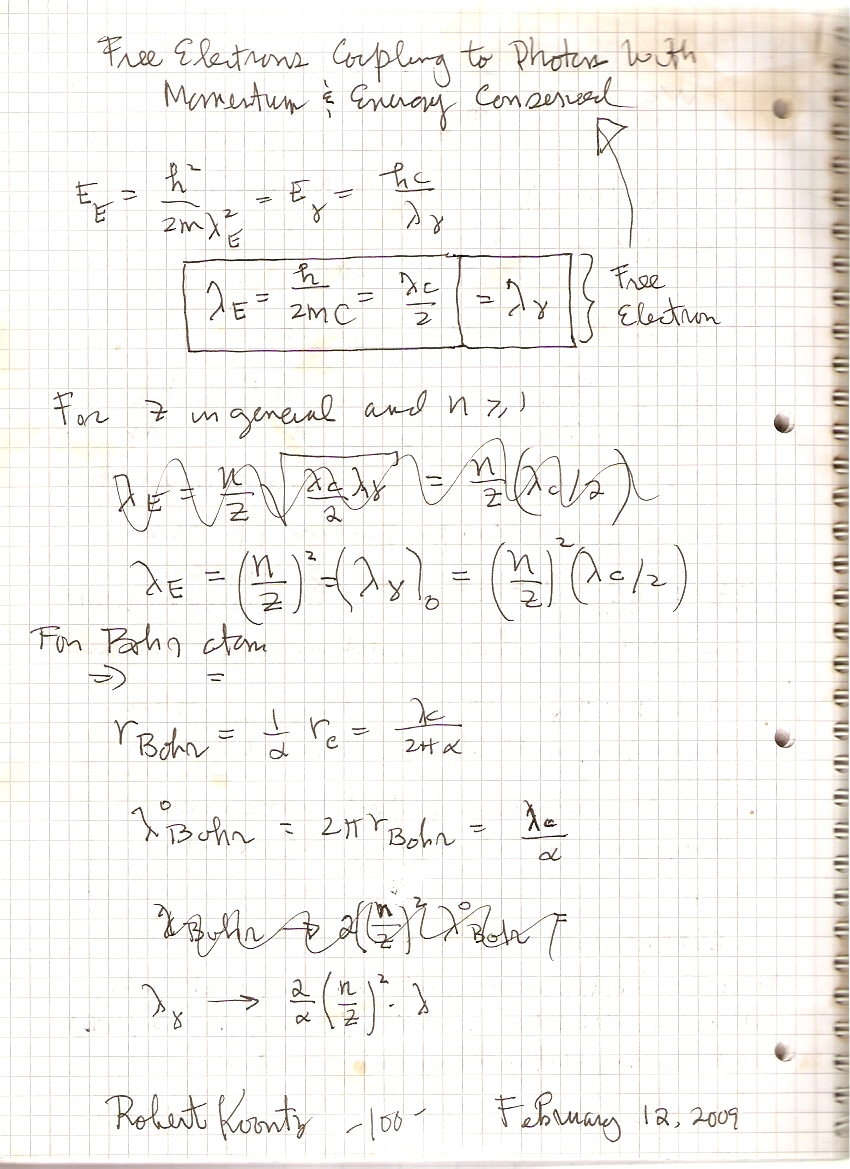 Free Electrons Coupling to Photons With
Momentum & Energy Conserved
E_E = ħ²/2mλ_E² = E_γ = ħc/λ_γ
λ_E = ħ/2mc = λc/2 = λ_γ } Free Electron
For Z in general and n ≥ 1
λ_E = n/Z √(λc/2 λ_γ) = n/Z (λc/2)
λ_E = (n/Z)² = (λ_γ)₀ = (n/Z)² (λc/2)
For Bohr atom
⇒ =
r_Bohr = 1/α r_c = λc/2πα
λ⁰_Bohr = 2π r_Bohr = λc/α
λ_Bohr → 2(n/Z)² (λ⁰_Bohr =
λ_γ → 2/α (n/Z)² · λ
Robert Koontz -100- February 12, 2009